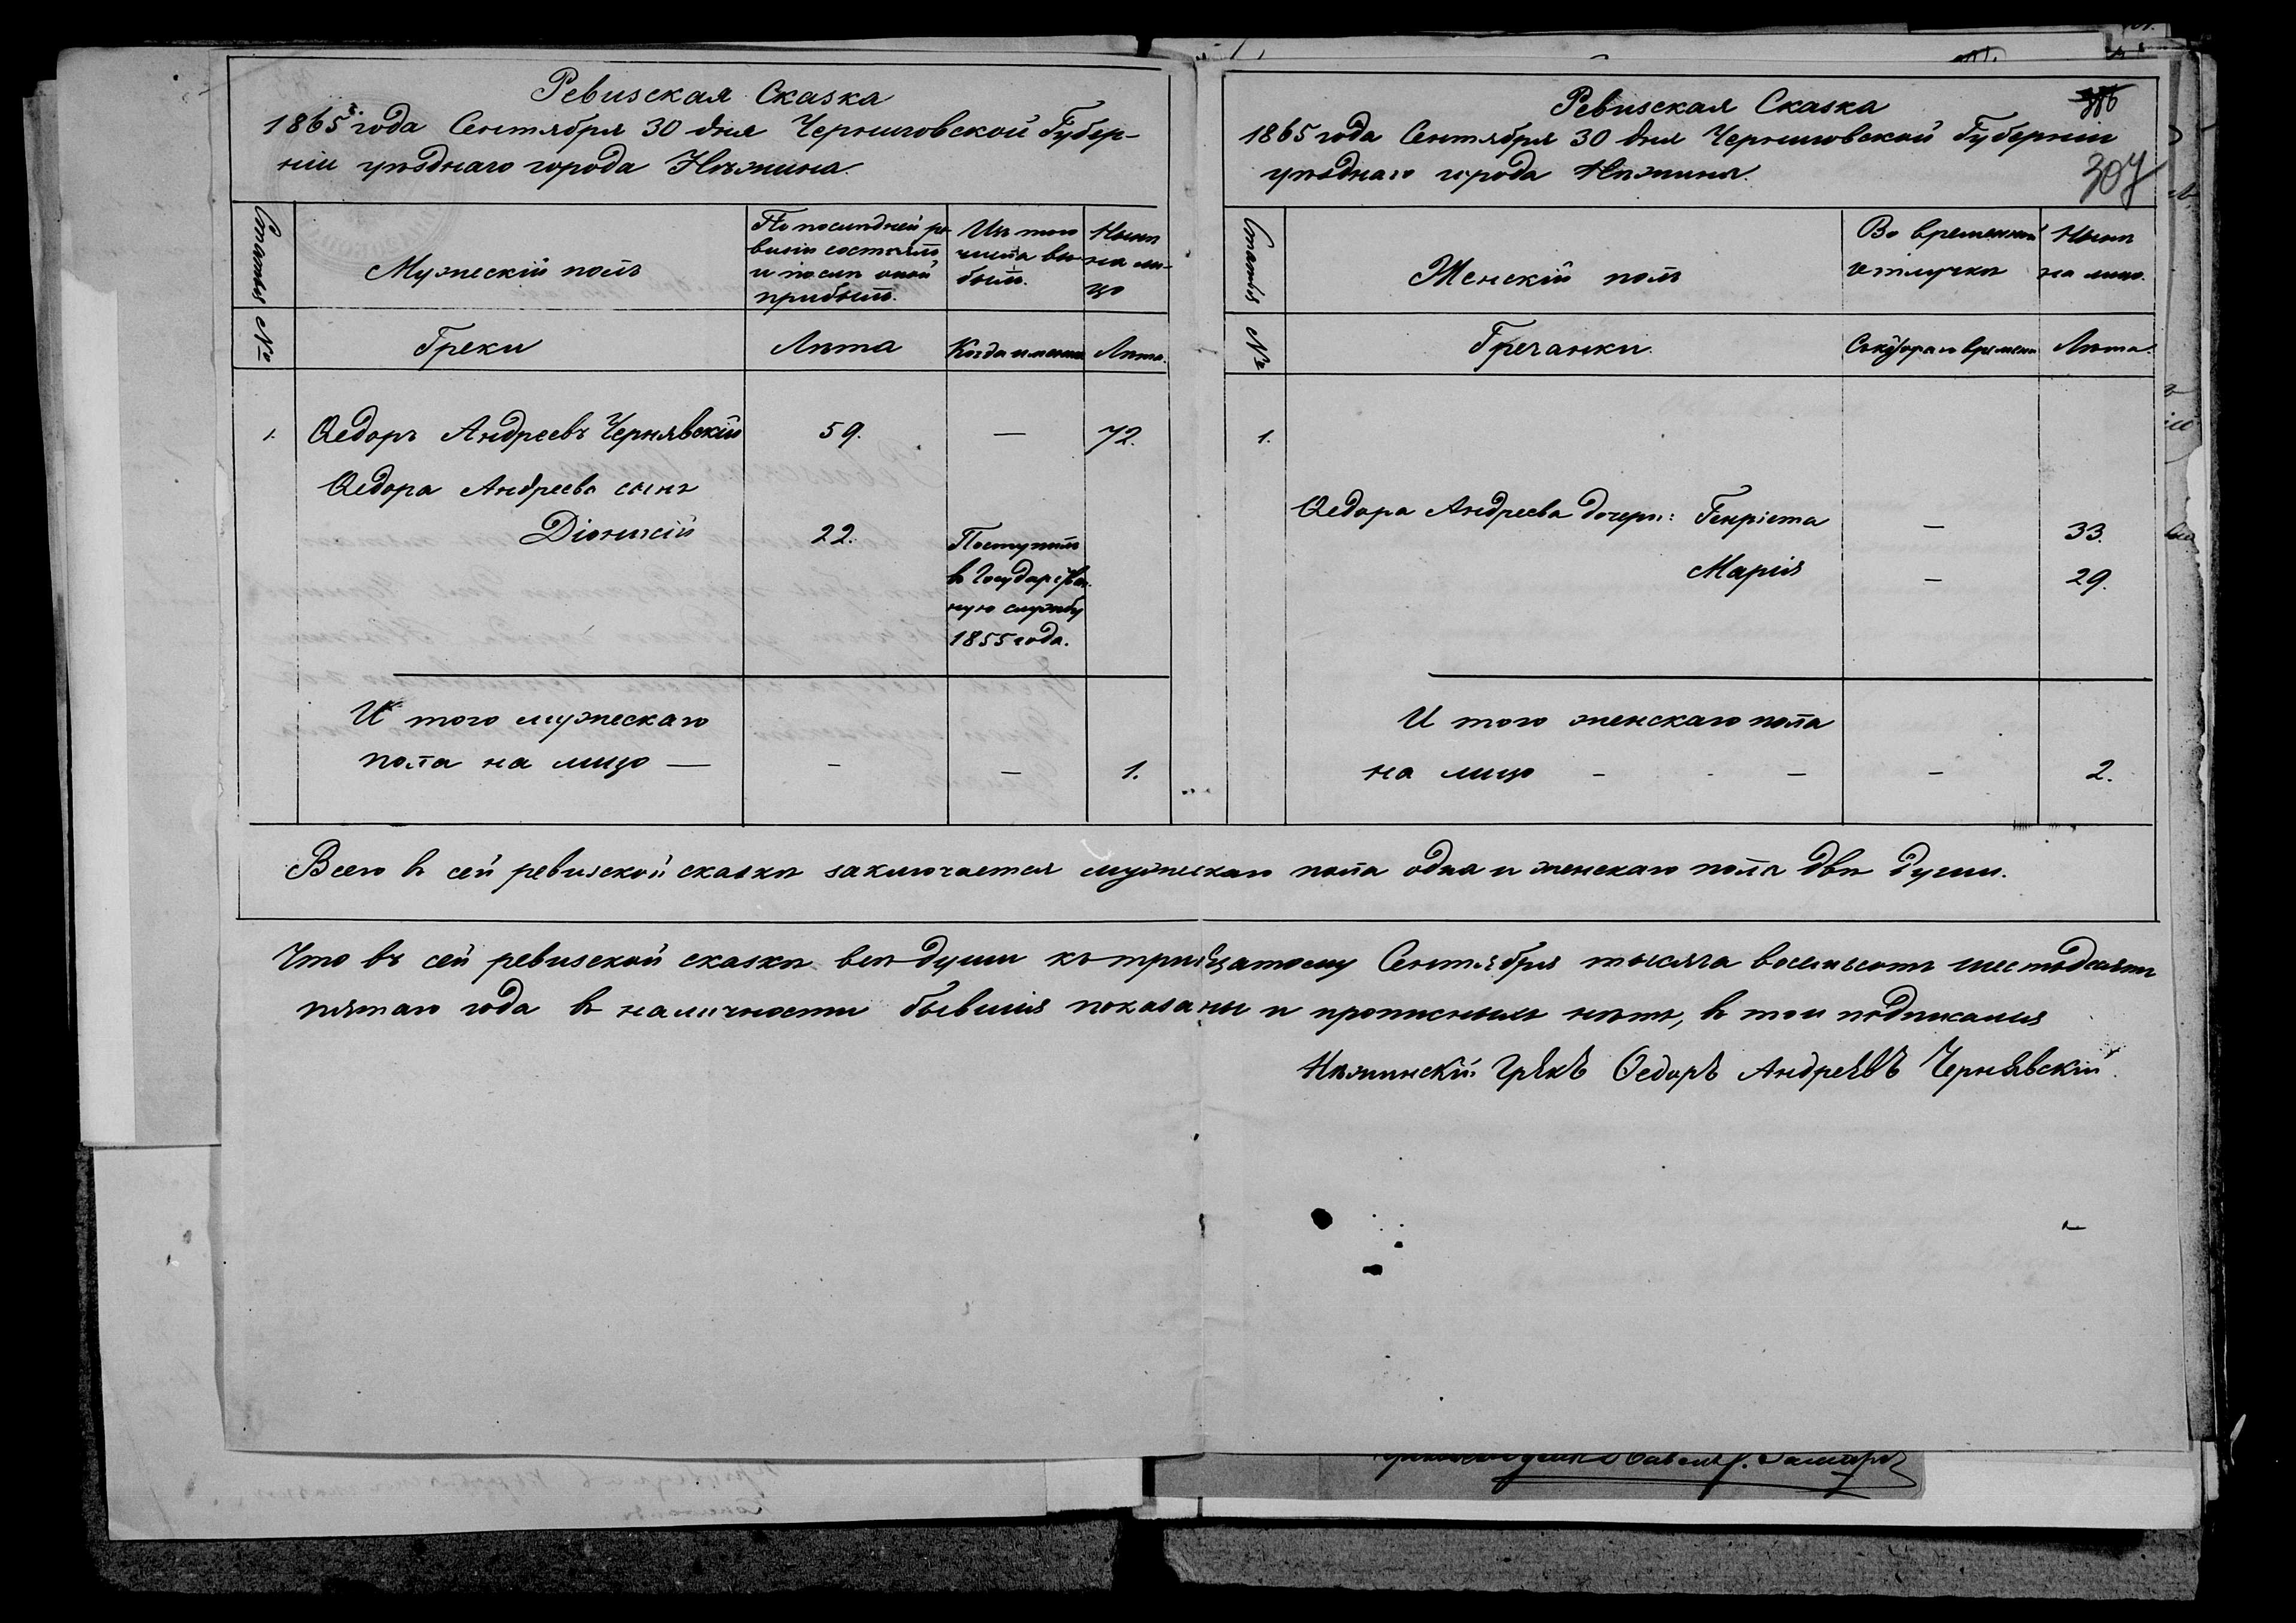 Ревизская Сказка
1865 года Сентября 30 дня Черниговской Губер-
ніи уѣзднаго города Нѣжина.
Статья
Мужескій полъ
По послѣдней ре-
визіи состояло
и послѣ оной
прибыло.
Изъ того
числа вы-
было.
Нынѣ
на ли-
цо
№
Греки
Лѣта
Когда именно
Лѣта.
1. Ѳедоръ Андреевъ Чернявскій 59. — 72.
Ѳедора Андреева сынъ
Діонисій 22. Поступилъ
в Государствен-
ную службу
1855 года.
И того мужескаго
пола на лицо — - — 1.
386
Ревизская Сказка
1865 года Сентября 30 дня Черниговской Губерніи
уѣзднаго города Нѣжина.
307
Статья
Женскій полъ
Во временной
отлучкѣ
Нынѣ
на лицо.
№
Гречанки.
Съ котораго времени
Лѣта.
1.
Ѳедора Андреева дочери: Генріета — 33.
Марія — 29.
И того женскаго пола
на лицо - - — — 2.
Всего в сей ревизской сказкѣ заключается мужескаго пола одна и женскаго пола двѣ души.
Что въ сей ревизской сказкѣ всѣ души к тридцатому Сентября тысяча восемьсотъ шестьдесятъ
пятаго года в наличности бывшія показаны и прописныхъ нѣтъ, в том подписался
Нѣжинскій Грѣкъ Ѳедоръ Андреѣвъ Чернявскій.